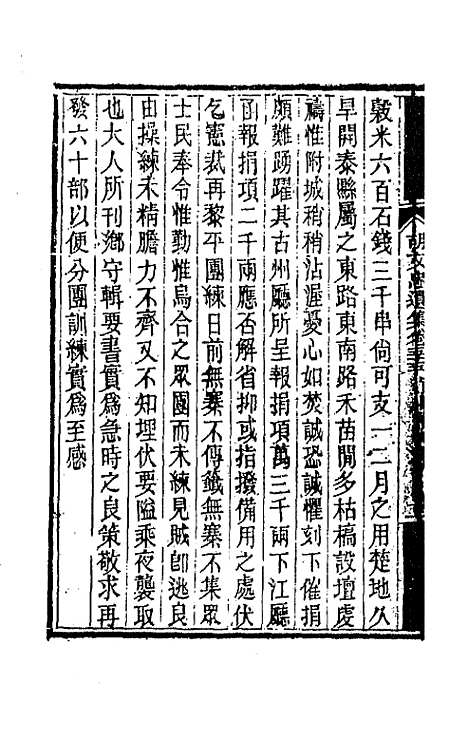 穀米六百石錢三千串尙可支一二月之用楚地久
旱開泰縣屬之東路東南路禾苗間多枯槁設壇虔
禱惟附城稍稍沾渥憂心如焚誠恐誠懼刻下催捐
頗難踴躍其古州廳所呈報捐項萬三千兩下江廳
函報捐項二千兩應否解省抑或指撥備用之處伏
乞憲裁再黎平團練日前無寨不傳籤無寨不集眾
士民奉令惟勤惟烏合之眾團而未練見賊卽逃良
由操練未精膽力不齊又不知埋伏要隘乘夜襲取
也大人所刊鄉守輯要書實爲急時之良策敬求再
發六十部以便分團訓練實爲至感